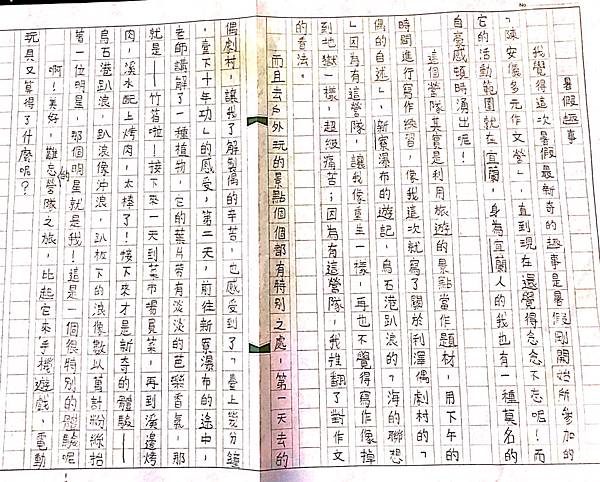 No
暑假趣事
我覺得這次暑假最新奇的趣事是暑假剛開始所參加的
「陳安儀多元作文營」，直到現在還覺得念念不忘呢！而
它的活動範圍就在宜蘭，身為宜蘭人的我也有一種莫名的
自豪感頓時湧出呢！
這個營隊其實是利用旅遊的景點當作題材，用下午的
時間進行寫作練習，像我這次就寫了關於利澤偶劇村的「
偶的自述」，新寮瀑布的遊記，烏石港趴浪的「海的聯想
」因為有這營隊，讓我像重生一樣，再也不覺得寫作像掉
到地獄一樣，超級痛苦；因為有這營隊，我推翻了對作文
的看法。
而且去戶外玩的景點個個都有特別之處，第一天去的
偶劇村，讓我了解製偶的辛苦，也感受到了「臺上幾分鐘
，臺下十年功」的感受，第二天，前往新寮瀑布的途中，
老師講解了一種植物，它的葉片帶有淡淡的芭樂香氣，那
就是——竹笛啦！接下來一天到菜市場買菜，再到溪邊烤
肉，溪水配上烤肉，太棒了！接下來才是新奇的體驗——
烏石港趴浪，趴浪像沖浪，趴板下的浪像數以萬計粉絲抬
著一位明星，那個明星就是我！這是一個很特別的體驗呢！
啊！美好，難忘的營隊之旅，比起它來手機遊戲，電動
玩具又算得了什麼呢？